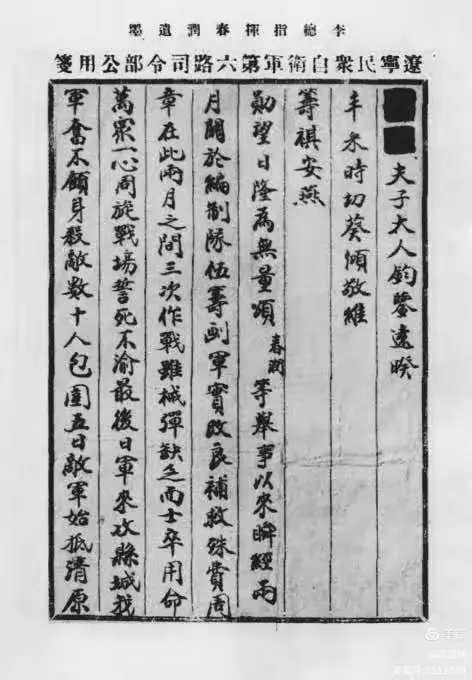 李總指揮春潤遺墨
遼寧民眾自衛軍第六路司令部公用箋
夫子大人鈞鑒遠暌
丰采時切葵傾敬維
籌祺安燕
勛望日隆為無量頌春潤等舉事以來瞬經兩
月關於編制隊伍籌劃軍實改良補救殊費周
章在此兩月之間三次作戰雖械彈缺乏而士卒用命
萬眾一心周旋戰場誓死不渝最後日軍來攻縣城我
軍奮不顧身殺敵數十人包圍五日敵軍始抵清原
美篇